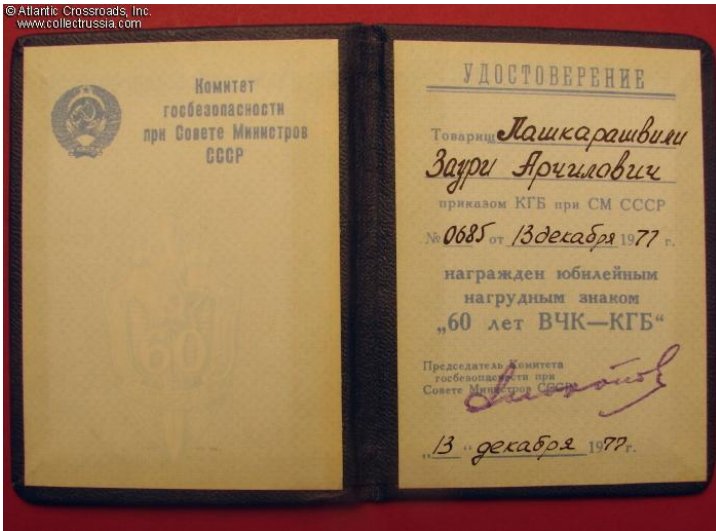 © Atlantic Crossroads, Inc.
www.collectrussia.com
Комитет
госбезопасности
при Совете Министров
СССР
60
УДОСТОВЕРЕНИЕ
Товарищ Лашкарашвили
Заури Арчилович
приказом КГБ при СМ СССР
№ 0685 от 13 декабря 1977 г.
награжден юбилейным
нагрудным знаком
„60 лет ВЧК—КГБ“
Председатель Комитета
госбезопасности при
Совете Министров СССР
„13“ декабря 1977 г.